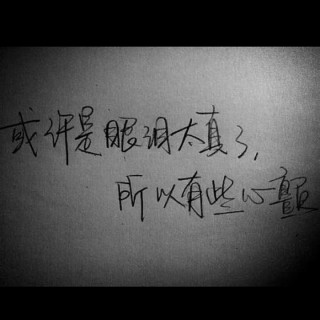 或许是眼泪太真了,
所以有些心颤